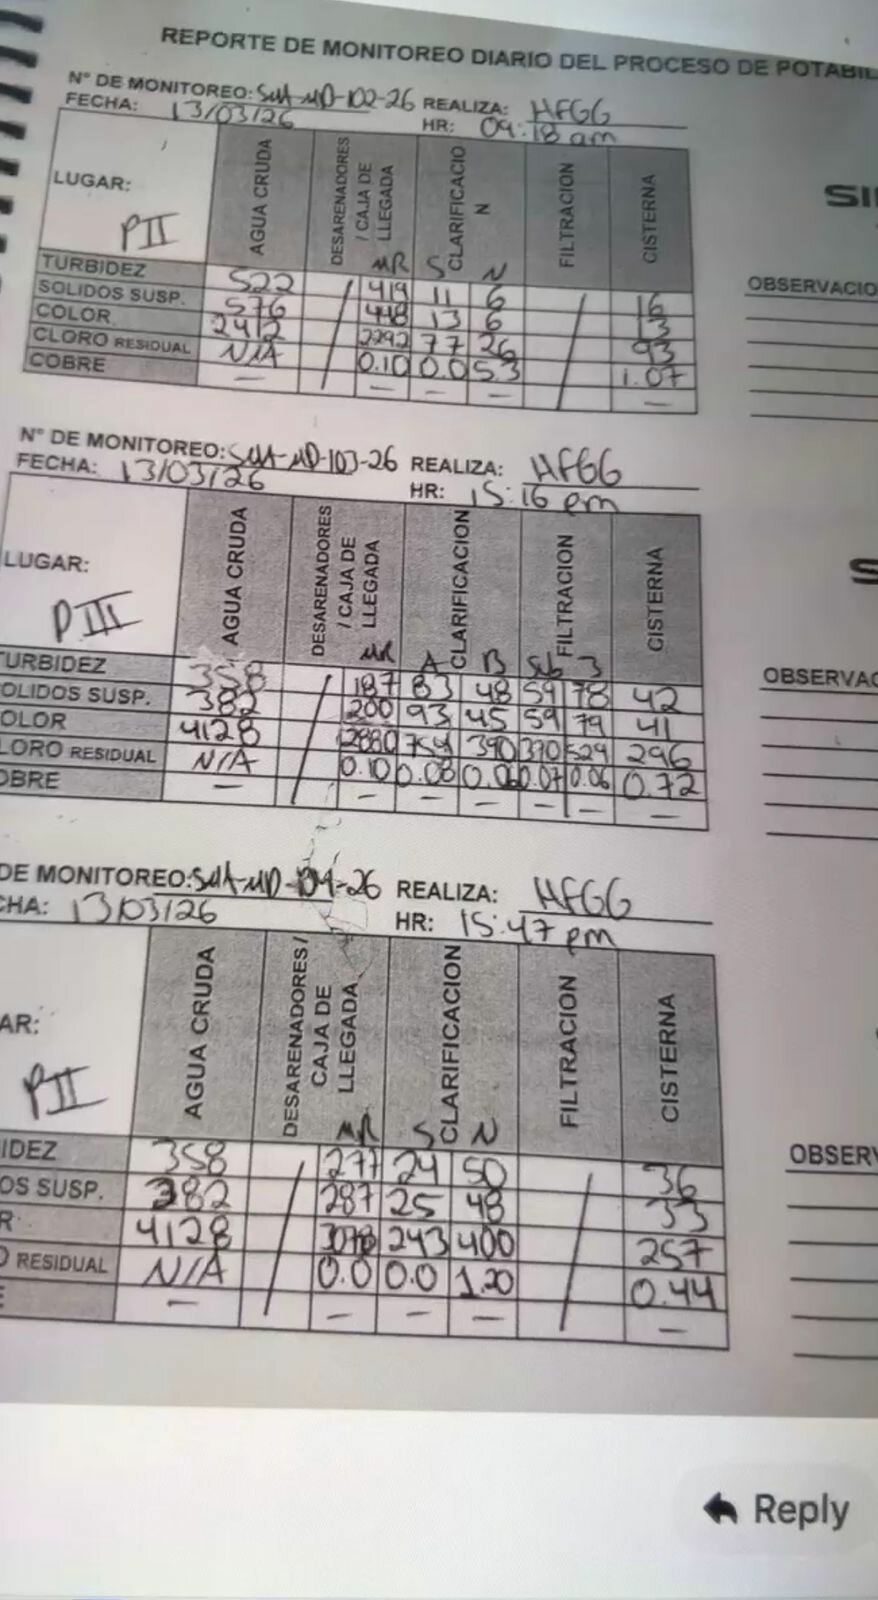 REPORTE DE MONITOREO DIARIO DEL PROCESO DE POTABIL
N° DE MONITOREO: SMA-MD-102-26 REALIZA: HFGG
FECHA: 13/03/26 HR: 09:18 am
LUGAR: PII
AGUA CRUDA
DESARENADORES / CAJA DE LLEGADA MR
CLARIFICACION S N
FILTRACION
CISTERNA
SI
TURBIDEZ 522 / 419 11 6 / 16
SOLIDOS SUSP. 576 448 13 6 13
COLOR 2412 2292 77 26 93
CLORO RESIDUAL N/A 0.10 0.0 5.3 1.07
COBRE — — — — —
OBSERVACIO
N° DE MONITOREO: SMA-MD-103-26 REALIZA: HFGG
FECHA: 13/03/26 HR: 15:16 pm
LUGAR: PIII
AGUA CRUDA
DESARENADORES / CAJA DE LLEGADA MR
CLARIFICACION A B
FILTRACION Sub 3
CISTERNA
S
TURBIDEZ 358 / 187 83 48 59 78 42
OLIDOS SUSP. 382 200 93 45 59 79 41
OLOR 4128 2880 754 390 370 529 296
LORO RESIDUAL N/A 0.10 0.08 0.06 0.07 0.06 0.72
OBRE — — — — — — —
OBSERVAC
DE MONITOREO: SMA-MD-104-26 REALIZA: HFGG
CHA: 13/03/26 HR: 15:47 pm
AR: PII
AGUA CRUDA
DESARENADORES / CAJA DE LLEGADA MR
CLARIFICACION S N
FILTRACION
CISTERNA
IDEZ 358 / 277 24 50 / 36
OS SUSP. 382 287 25 48 33
R 4128 3078 243 400 257
O RESIDUAL N/A 0.0 0.0 1.20 0.44
E — — — — —
OBSERV
Reply